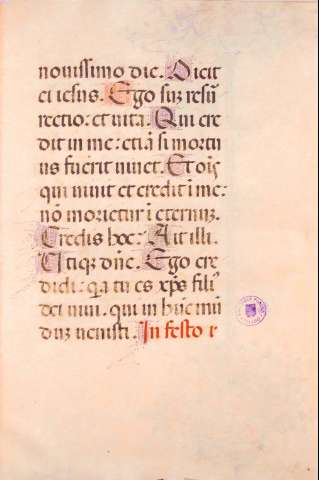 nouissimo die. Dicit
ei iesus. Ego suȝ resur̄
rectio: et uita. Qui cre
dit in me: etiā si mortu
us fuerit uiuet. Et oīs
qui uiuit et credit ī me:
nō morietur ī eternuȝ.
Credis hoc: Ait illi.
Utiqȝ dn̄e. Ego cre
didi: q̄a tu es xp̄s filiꝰ
dei uiui. qui in hūc mū
duȝ uenisti. In festo r